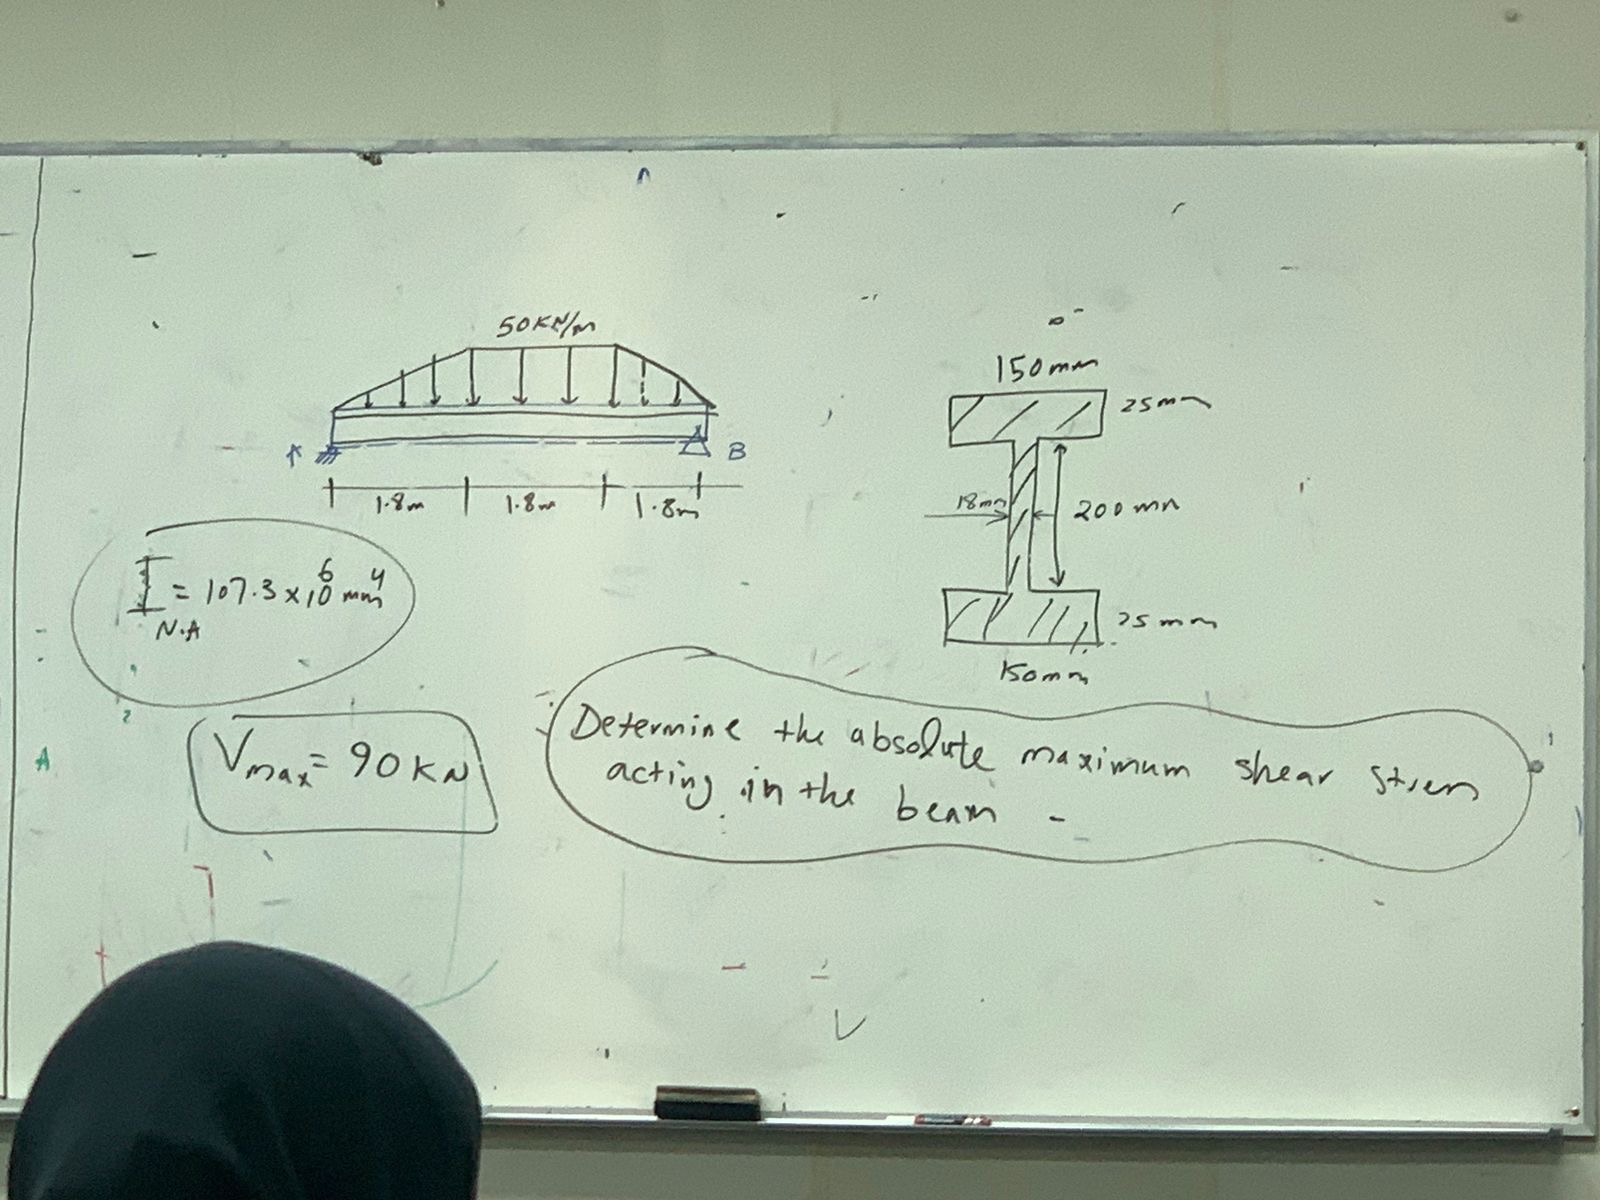 50KN/m
A
B
1.8m
1.8m
1.8m
150mm
25mm
18mm
200mm
25mm
150mm
I N.A = 107.3 x 10⁶ mm⁴
Vmax = 90KN
Determine the absolute maximum shear stress
acting in the beam -
A